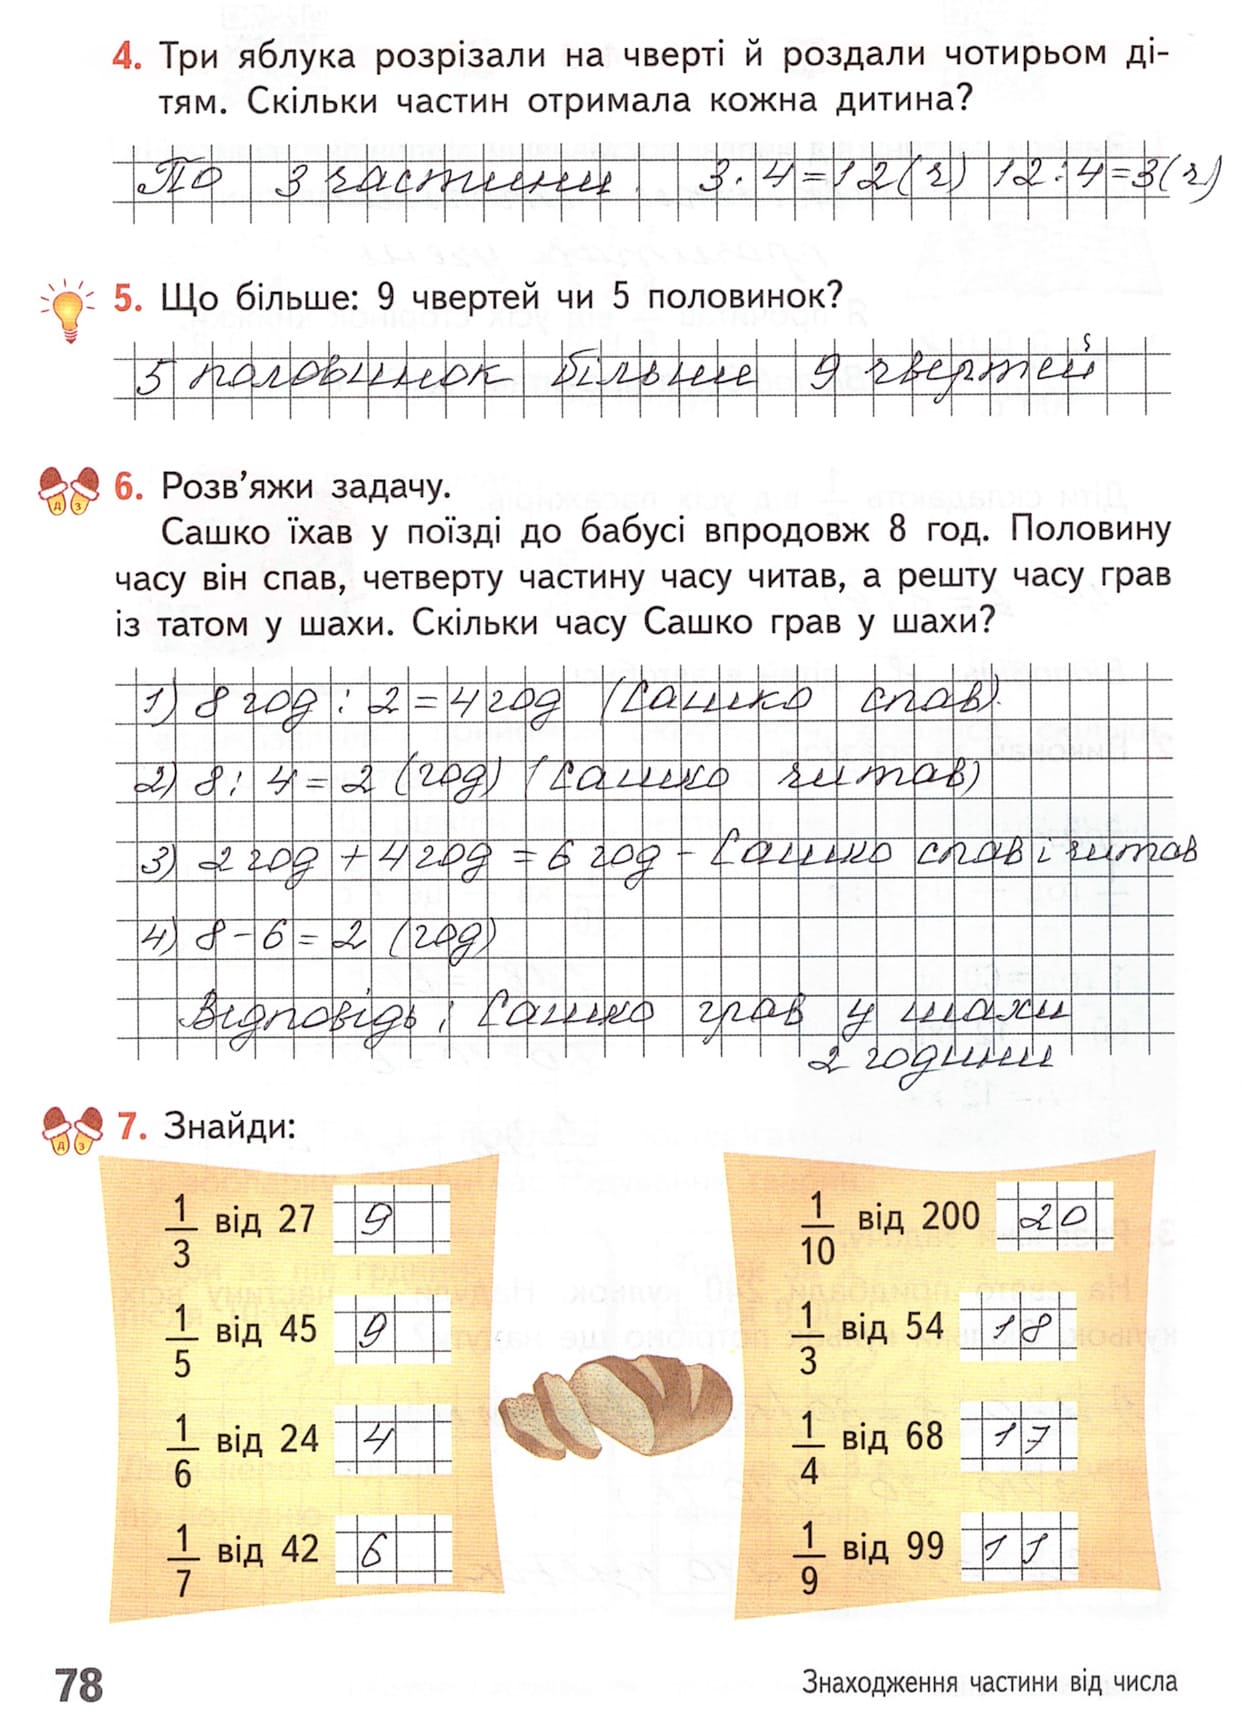 4. Три яблука розрізали на чверті й роздали чотирьом ді-
тям. Скільки частин отримала кожна дитина?
По 3 частини. 3·4=12(ч) 12:4=3(ч)
5. Що більше: 9 чвертей чи 5 половинок?
5 половинок більше 9 чвертей
д з
6. Розв’яжи задачу.
Сашко їхав у поїзді до бабусі впродовж 8 год. Половину
часу він спав, четверту частину часу читав, а решту часу грав
із татом у шахи. Скільки часу Сашко грав у шахи?
1) 8 год : 2 = 4 год (Сашко спав).
2) 8 : 4 = 2 (год) (Сашко читав)
3) 2 год + 4 год = 6 год - Сашко спав і читав
4) 8 - 6 = 2 (год)
Відповідь: Сашко грав у шахи
2 години
д з
7. Знайди:
1/3 від 27 9
1/5 від 45 9
1/6 від 24 4
1/7 від 42 6
1/10 від 200 20
1/3 від 54 18
1/4 від 68 17
1/9 від 99 11
78
Знаходження частини від числа